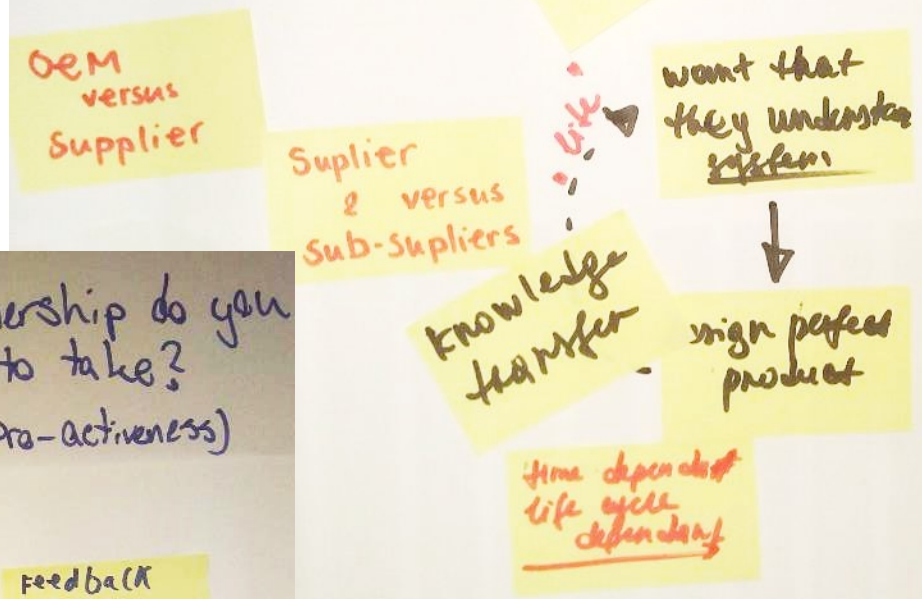 OEM
versus
Supplier
Suplier
& versus
sub-supliers
life
want that
they understan
system
knowledge
transfer
sign perfect
product
time dependent
life cycle
dependant
ership do you
to take?
pro-activeness)
Feedback